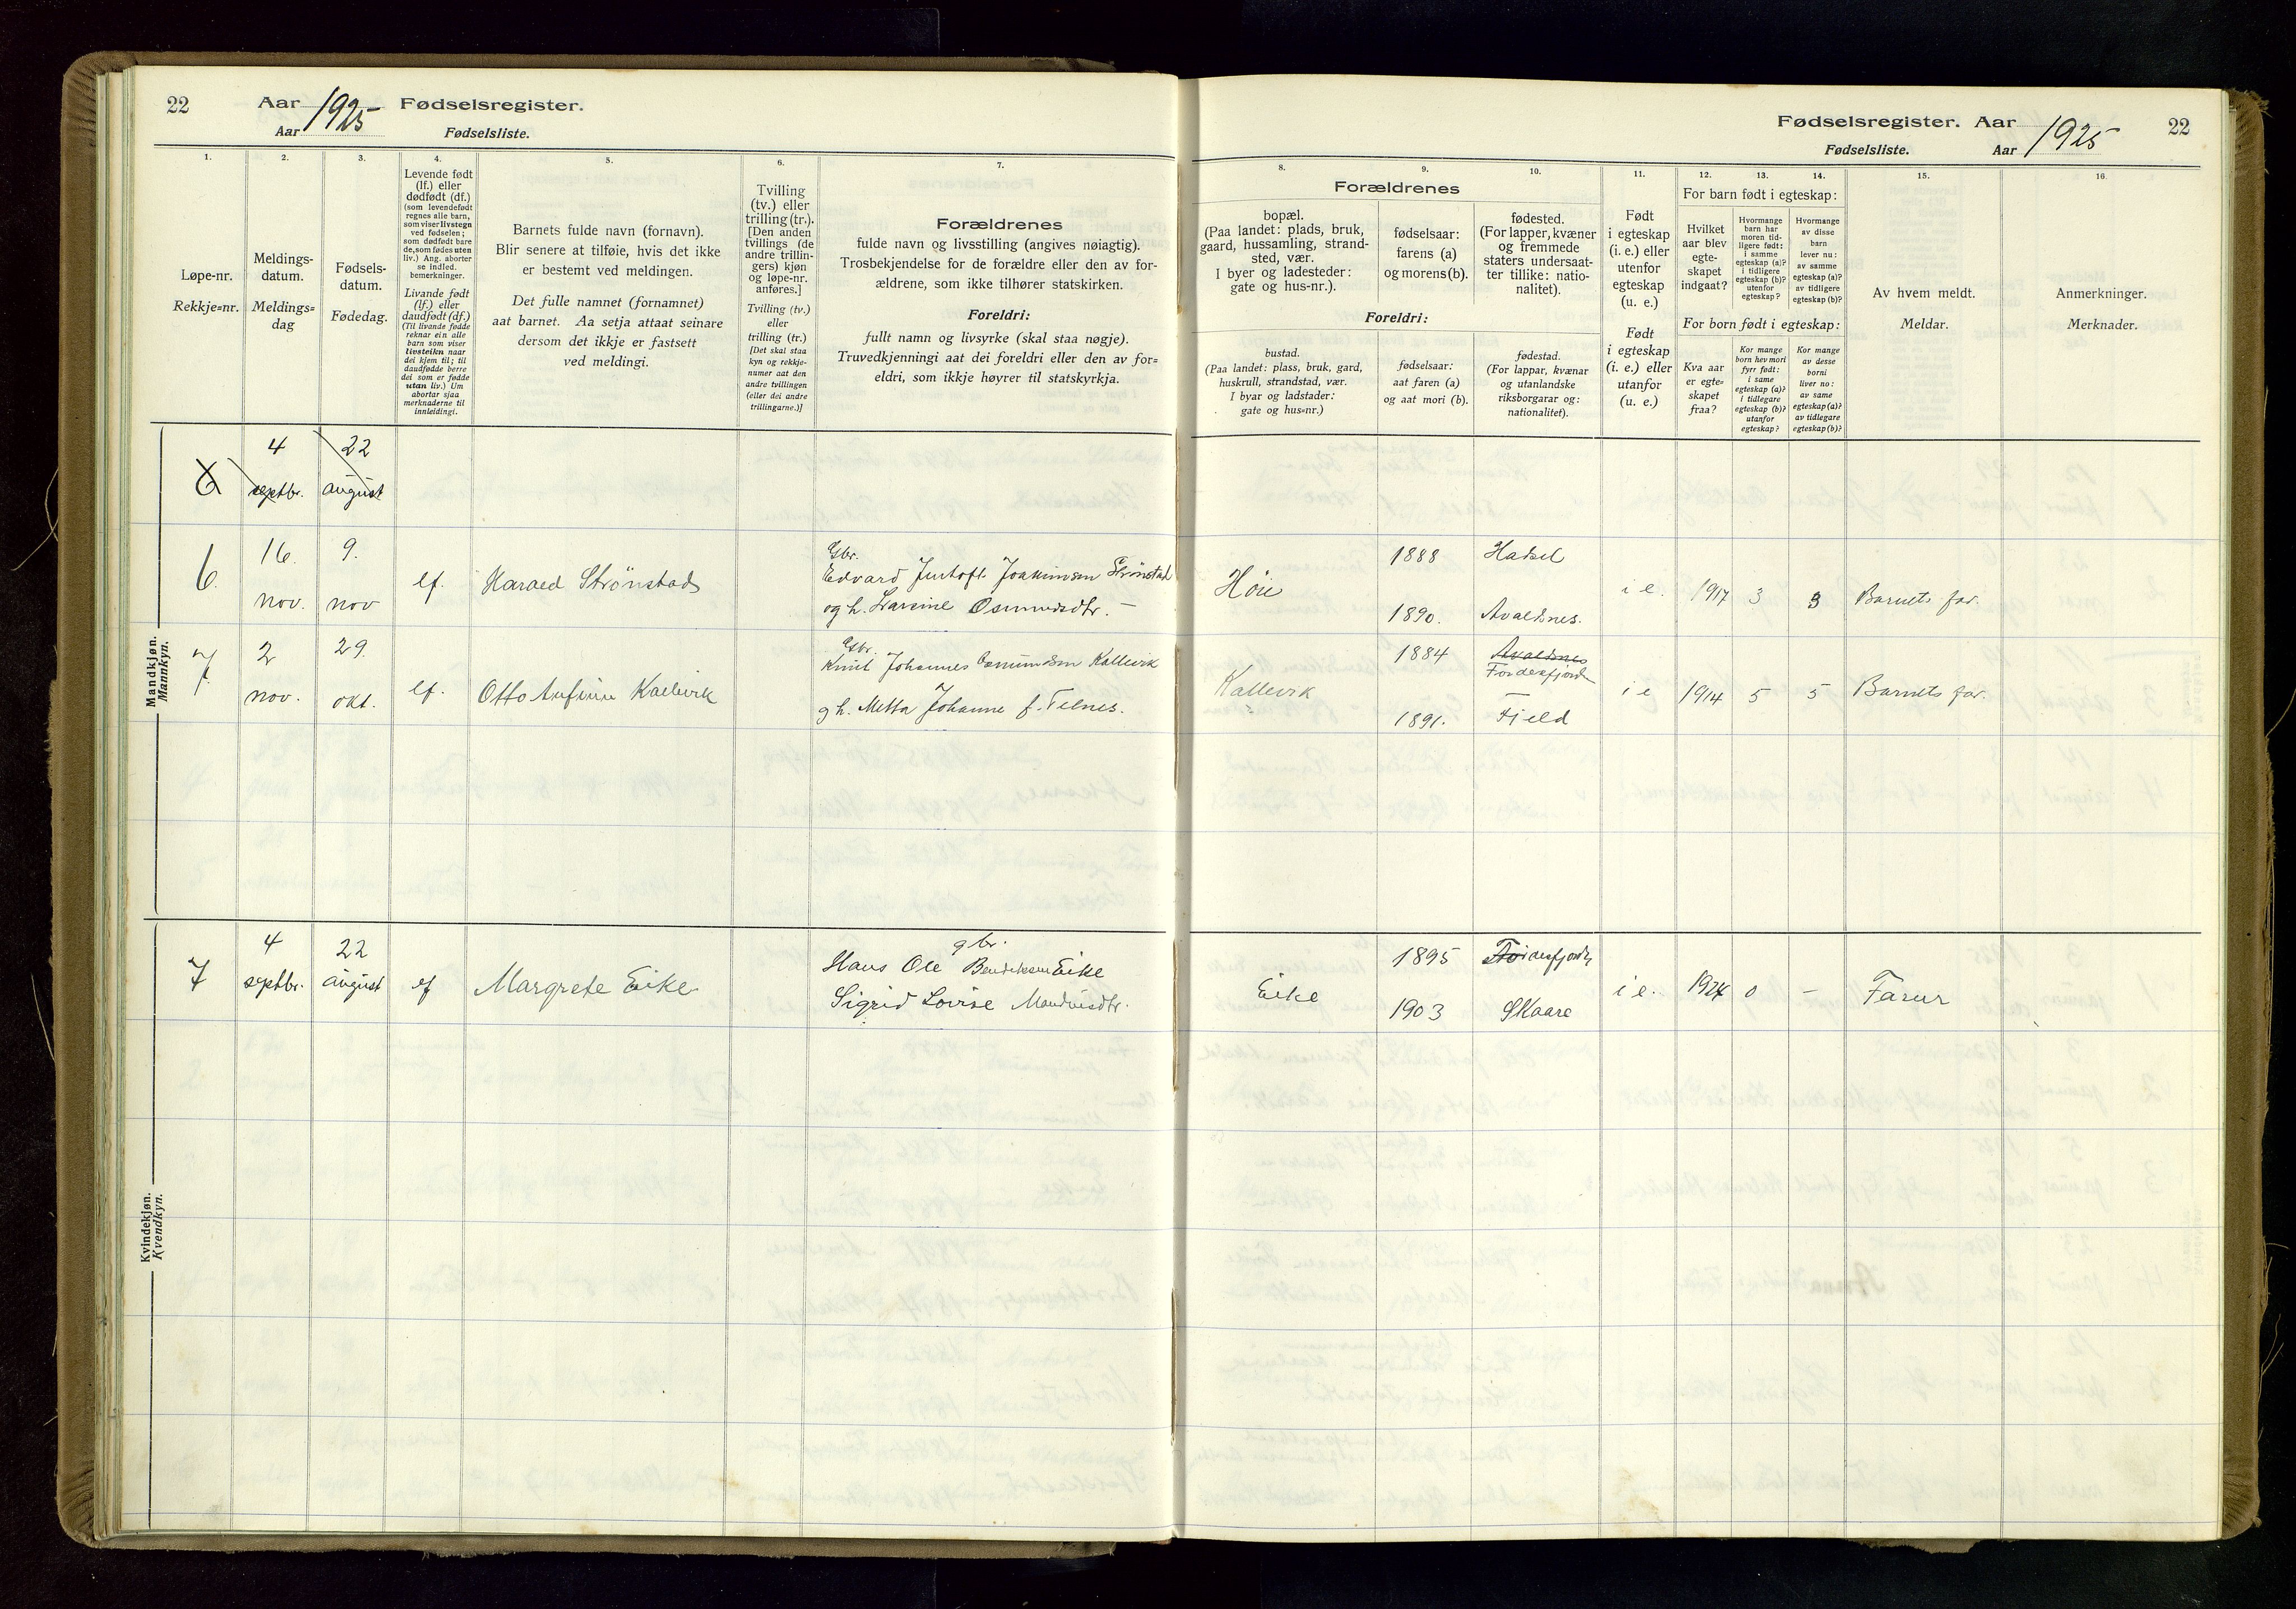 22 Aar 1925 Fødselsregister.
Aar Fødselsliste.
1. 2. 3. 4. 5. 6. 7.
Løpe-nr.
Rekkje=nr.
Meldings-
datum.
Meldings=
dag
Fødsels-
datum.
Fødedag.
Levende født
(lf.) eller
dødfødt (df.)
(som levendefødt
regnes alle barn,
som viser livstegn
ved fødselen;
som dødfødt bare
de, som fødes uten
liv.) Ang. aborter
se indled.
bemerkninger.
Livande født
(lf.) eller
daudfødt (df.)
(Til livande fødde
reknar ein alle
barn som viser
livsteikn naar
dei kjem til; til
daudfødde berre
dei som er fødde
utan liv.) Um
abortar sjaa
merknaderne til
innleidingi.
Barnets fulde navn (fornavn).
Blir senere at tilføie, hvis det ikke
er bestemt ved meldingen.
Det fulle namnet (fornamnet)
aat barnet. Aa setja attaat seinare
dersom det ikkje er fastsett
ved meldingi.
Tvilling
(tv.) eller
trilling (tr.).
[Den anden
tvillings (de
andre trillin-
gers) kjøn
og løpe-nr.
anføres.]
Tvilling (tv.)
eller
trilling (tr.)
[Det skal staa
kyn og rekkje-
numer aat den
andre tvillingen
(eller dei andre
trillingarne.)]
Forældrenes
fulde navn og livsstilling (angives nøiagtig).
Trosbekjendelse for de forældre eller den av for-
ældrene, som ikke tilhører statskirken.
Foreldri:
fullt namn og livsyrke (skal staa nøgje).
Truvedkjenningi aat dei foreldri eller den av for=
eldri, som ikkje høyrer til statskyrkja.
Mandkjøn.
Mannkyn.
6 4 septbr. 22 august
6. 16. nov. 9. nov lf. Harald Strönstad
Gbr.
Edvard Justoft Joakimsen Strönstad
og h. Larsine Osmundsdtr. —
7. 2 nov. 29. okt. lf. Otto Anfinn Kallevik
Gbr.
Knut Johannes Osmundsen Kallevik
og h. Metta Johanne f. Telnes.
Kvindekjøn.
Kvendkyn.
7 4 septbr. 22 august lf Margrete Eike
gbr.
Hans Ole Bendiksen Eike
Sigrid Lovise Mandiusdtr.
Fødselsregister. Aar 1925 22
Fødselsliste. Aar
8. 9. 10. 11. 12. 13. 14. 15. 16.
Forældrenes
bopæl.
(Paa landet: plads, bruk,
gaard, hussamling, strand-
sted, vær.
I byer og ladesteder:
gate og hus-nr.).
fødselsaar:
farens (a)
og morens (b).
fødested.
(For lapper, kvæner
og fremmede
staters undersaat-
ter tillike: natio-
nalitet).
Foreldri:
bustad.
(Paa landet: plass, bruk, gard,
huskrull, strandstad, vær.
I byar og ladstader:
gate og hus=nr.)
fødselsaar:
aat faren (a)
og aat mori (b).
fødestad.
(For lappar, kvænar
og utanlandske
riksborgarar og:
nationalitet).
Født
i egteskap
(i. e.) eller
utenfor
egteskap
(u. e.)
Født
i egteskap
(i. e.) eller
utanfor
(u. e.)
For barn født i egteskap:
Hvilket
aar blev
egte-
skapet
indgaat?
Hvormange
barn har
moren tid-
ligere født:
i samme
egteskap (a)?
i tidligere
egteskap (b)?
utenfor
egteskap?
Hvormange
av disse
barn
lever nu:
av samme
egteskap (a)?
av tidligere
egteskap (b)?
For born født i egteskap:
Kva aar
er egte=
skapet
fraa?
Kor mange
born hev mori
fyrr født:
i same
egteskap (a)?
i tidlegare
egteskap (b)?
utanfor
egteskap?
Kor mange
av desse
borni
liver no:
av same
egteskap (a)?
av tidlegare
egteskap (b)?
Av hvem meldt.
Meldar.
Anmerkninger.
Merknader.
Höie 1888 Hadsel
1890. Avaldsnes.
i e. 1917 3 3 Barnets far.
Kallevik 1884 Avaldsnes
Fördesfjord
1891. Fjeld
i e 1914 5 5 Barnets far.
Eike 1895 Fördesfjord
1903 Skaare
i e. 1924 0 — Faren